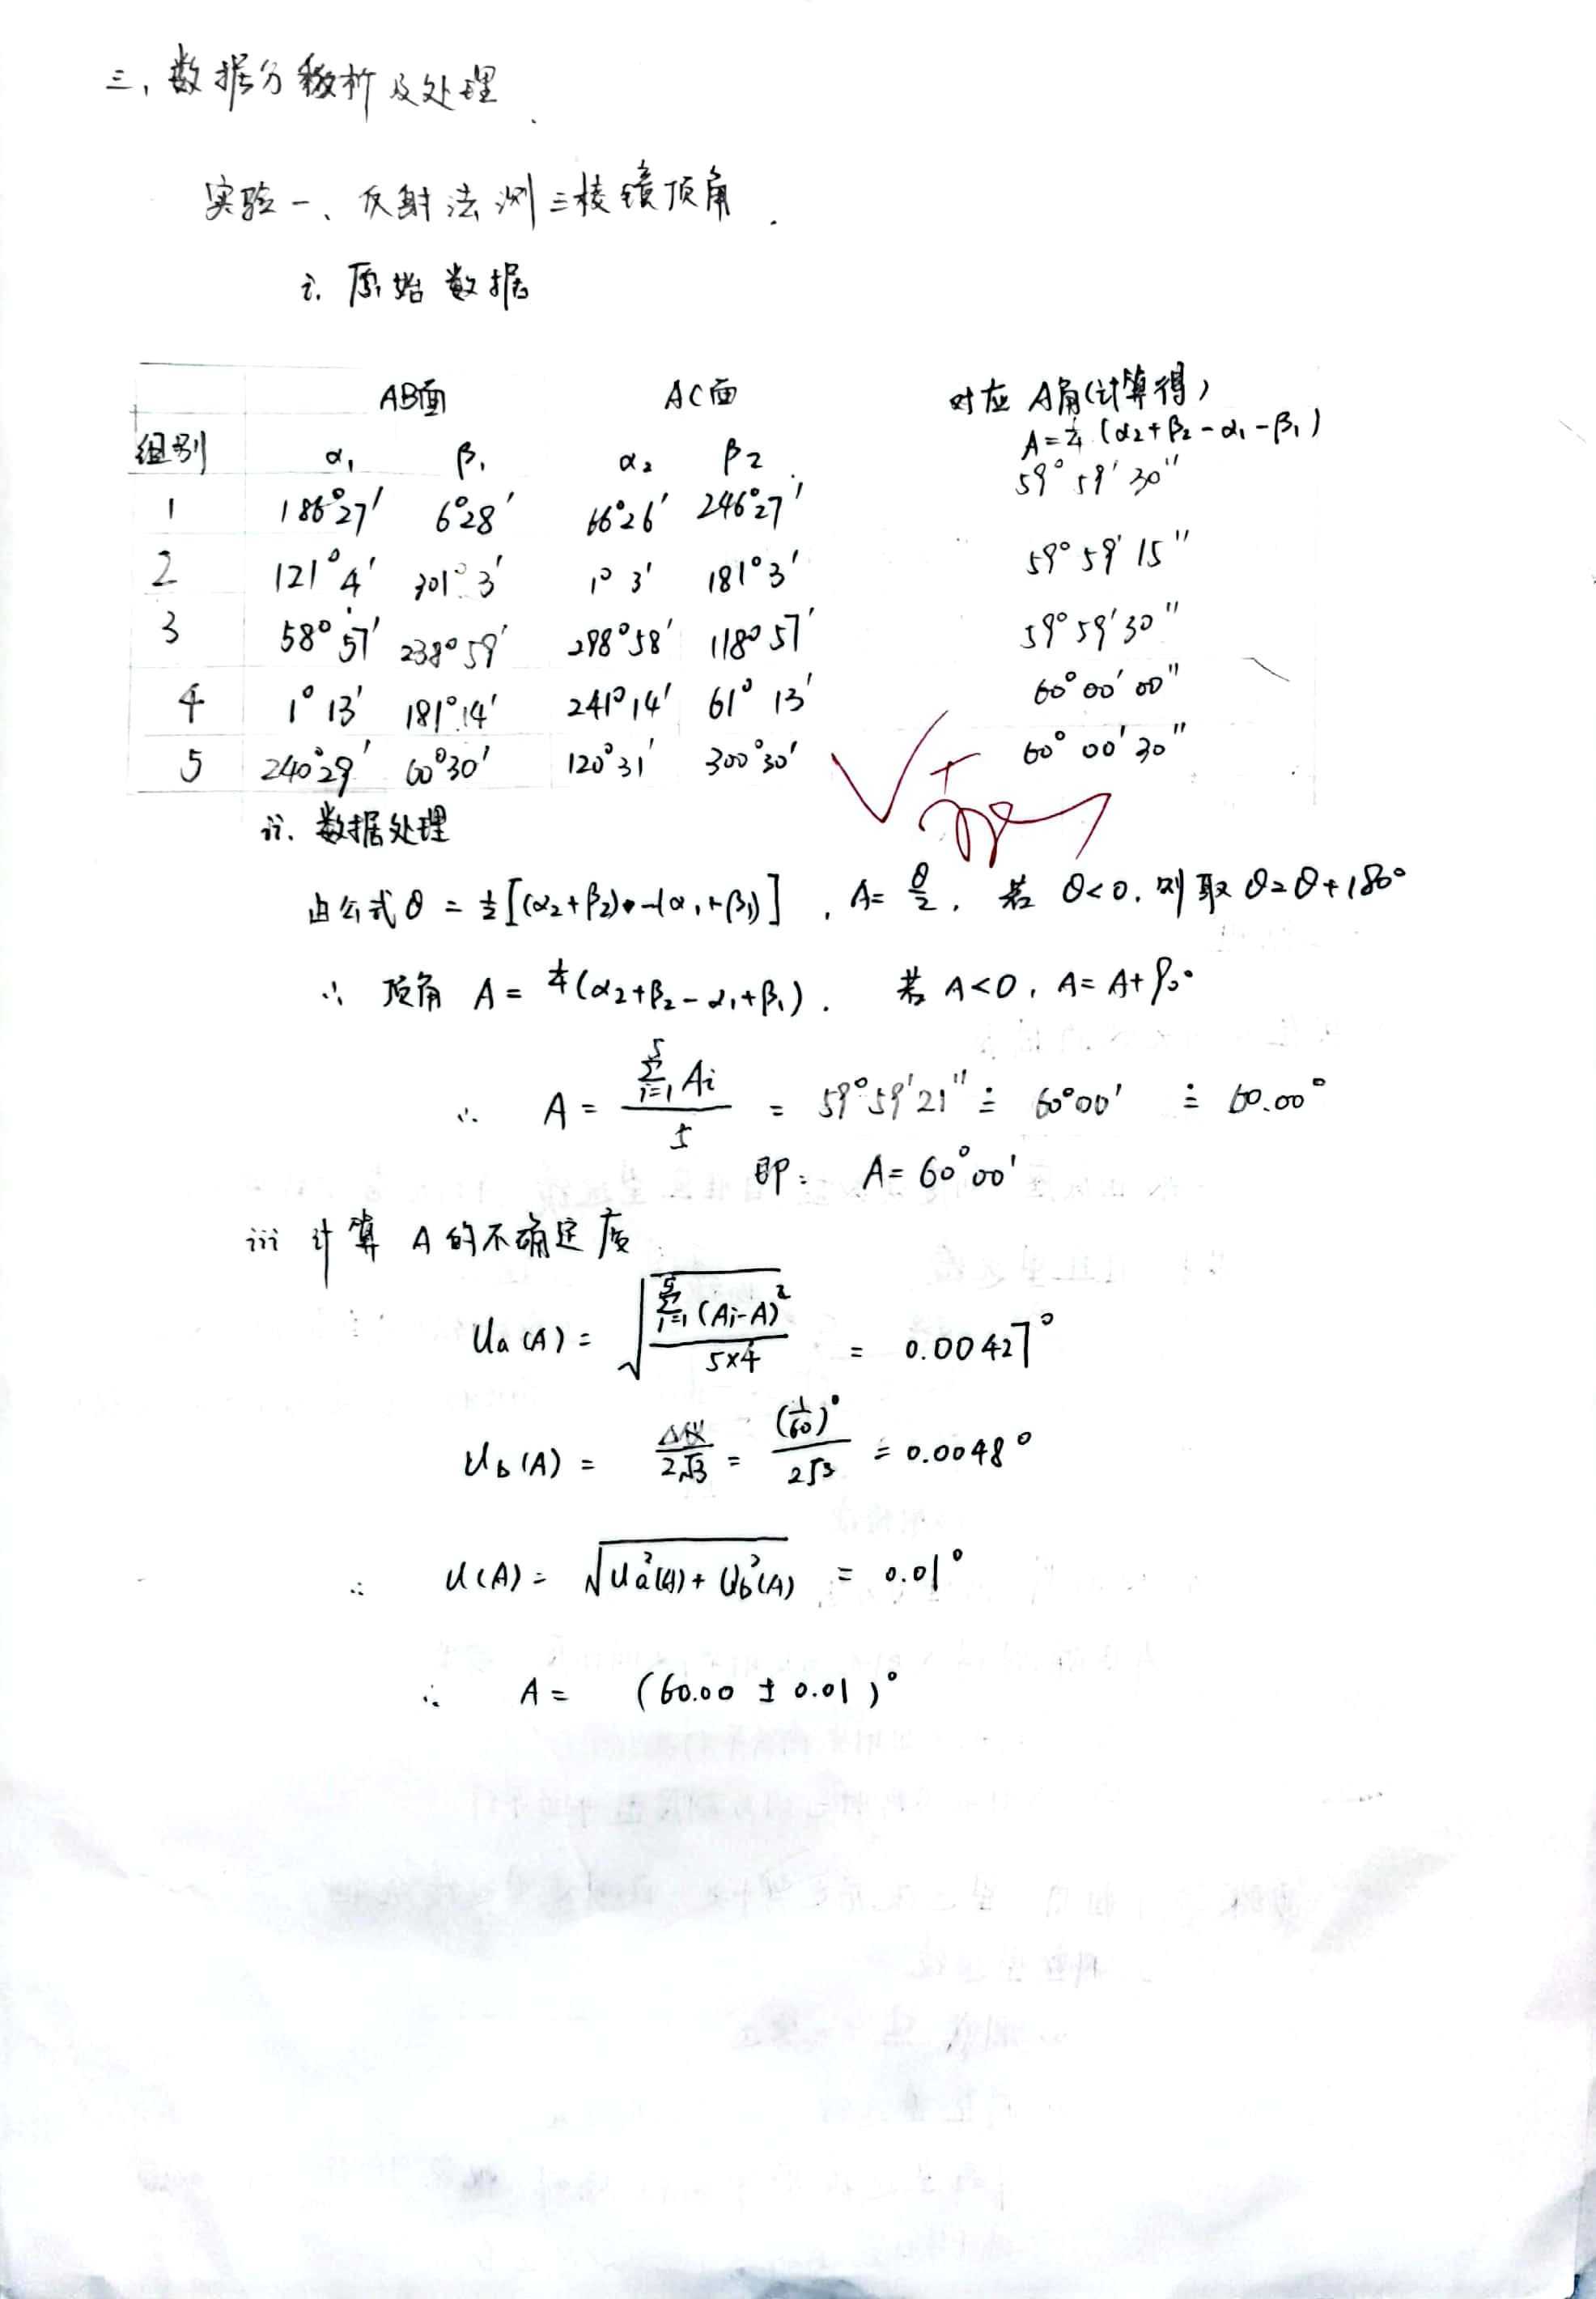 三、数据分析及处理
实验一、反射法测三棱镜顶角.
i. 原始数据
AB面 AC面 对应A角(计算得)
A=¼(α₂+β₂-α₁-β₁)
组别 α₁ β₁ α₂ β₂
1 186°27′ 6°28′ 66°26′ 246°27′ 59°59′30″
2 121°4′ 301°3′ 1°3′ 181°3′ 59°59′15″
3 58°57′ 238°59′ 298°58′ 118°57′ 59°59′30″
4 1°13′ 181°14′ 241°14′ 61°13′ 60°00′00″
5 240°29′ 60°30′ 120°31′ 300°30′ 60°00′30″
ii. 数据处理
由公式θ=½[(α₂+β₂)-(α₁+β₁)], A=θ/2, 若θ<0,则取θ=θ+180°
∴ 顶角 A=¼(α₂+β₂-α₁+β₁). 若A<0, A=A+90°
∴ A = (∑_{i=1}^{5} Ai)/5 = 59°59′21″ ≐ 60°00′ ≐ 60.00°
即: A=60°00′
iii 计算A的不确定度
Ua(A) = √(∑_{i=1}^{5}(Ai-A)²/(5×4)) = 0.00427°
Ub(A) = Δ仪/(2√3) = (1/60)°/(2√3) = 0.0048°
∴ U(A) = √(Ua²(A)+Ub²(A)) = 0.01°
∴ A = (60.00 ± 0.01)°